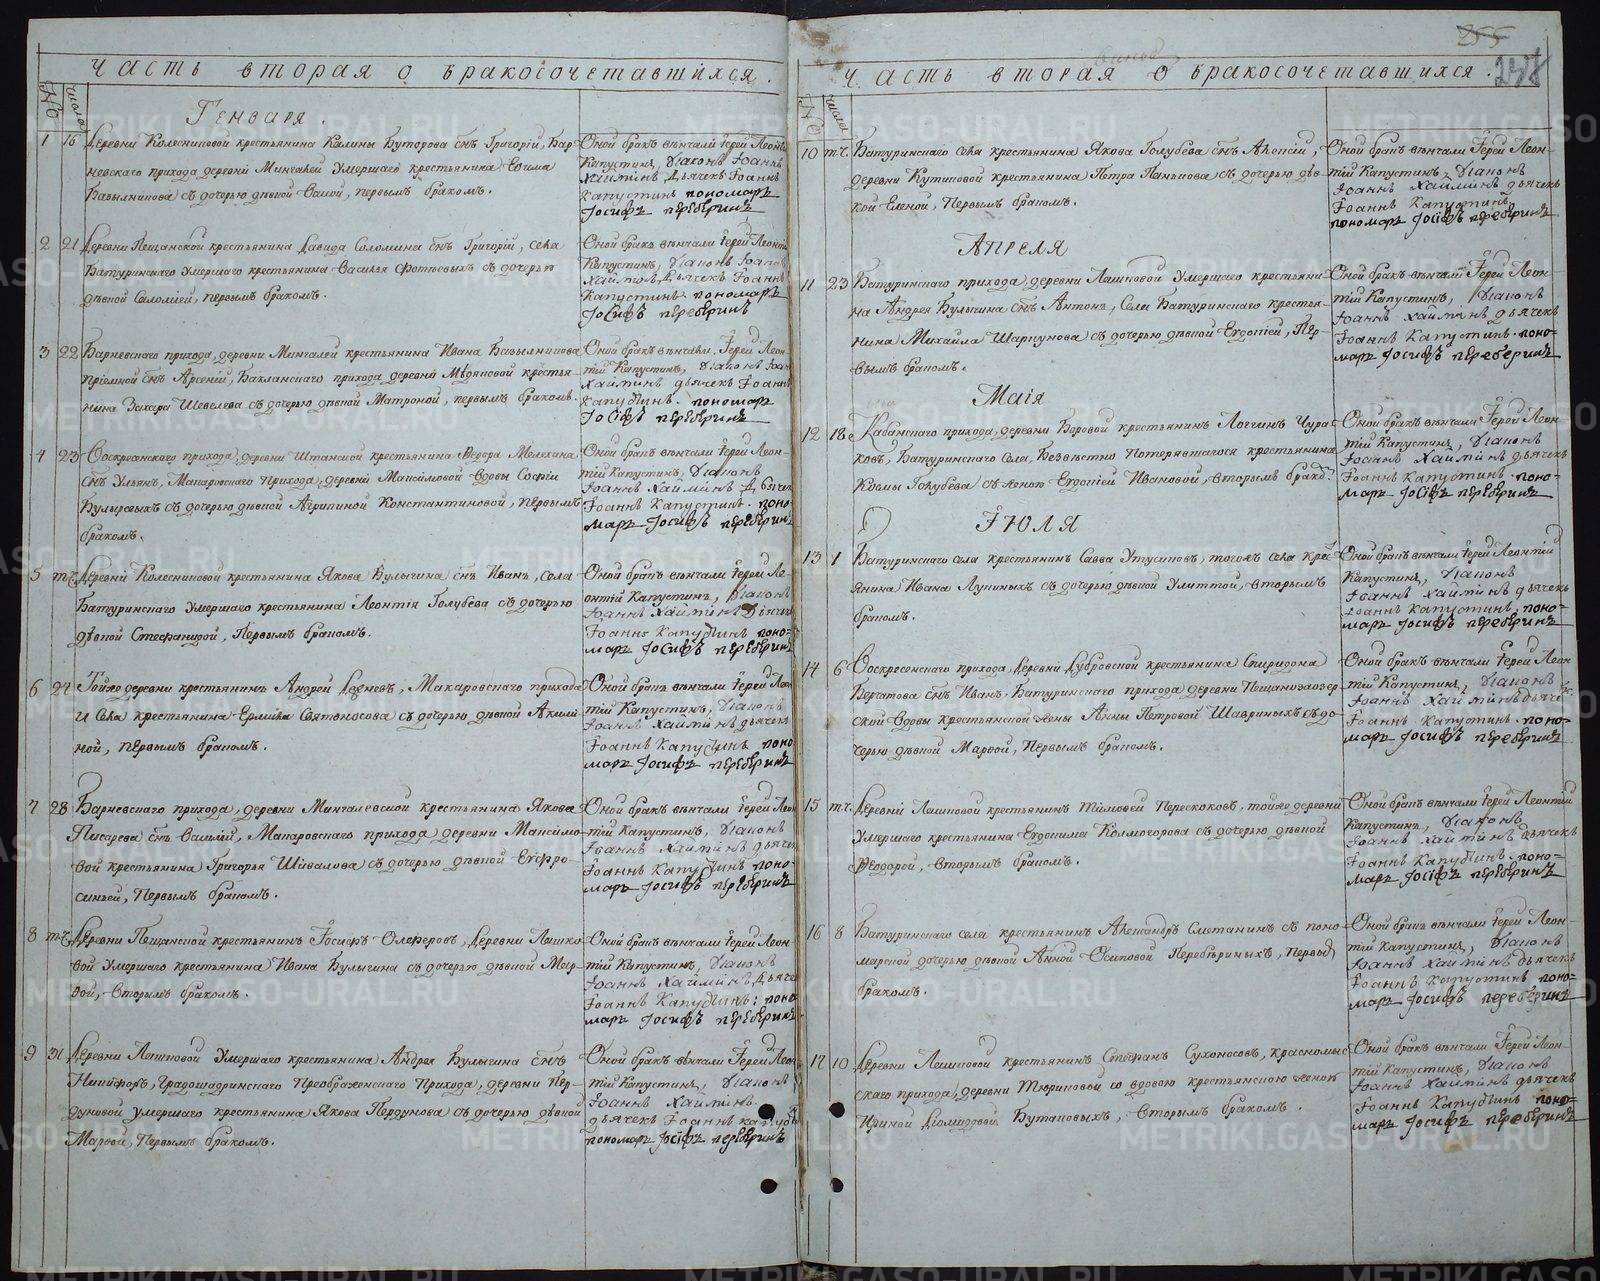 Часть вторая о бракосочетавшихся.
№ число
Генваря.
1 16 Деревни Колесниковой крестьянина Калины Буторова сынъ Григорій, Бар-
невскаго прихода деревни Умершаго крестьянина
съ дочерью дѣвкой первымъ бракомъ.
Оной бракъ вѣнчали Іерей Леонтій
Капустинъ, Діаконъ Іоаннъ
Хайминъ Дьячекъ Іоаннъ
Капустинъ пономарь
Іосифъ перебѣринъ
2 21 Деревни Пещанской крестьянина Давида Соломина сынъ Григорій, села
Батуринскаго умершаго крестьянина Василья Фотѣевыхъ съ дочерью
дѣвкой Соломіей, первымъ бракомъ.
Оной бракъ вѣнчали Іерей Леонтій
Капустинъ, Діаконъ Іоаннъ
Хайминъ Дьячекъ Іоаннъ
Капустинъ пономарь
Іосифъ перебѣринъ
3 22 Барневскаго прихода, деревни крестьянина Ивана
пріемной сынъ Арсеній, Бакланскаго прихода деревни Мѣдяновой крестья-
нина Захара Шевелева съ дочерью дѣвкой Матроной, первымъ бракомъ.
Оной бракъ вѣнчали Іерей Леон-
тій Капустинъ, Діаконъ Іоаннъ
Хайминъ дьячекъ Іоаннъ
Капустинъ. пономарь
Іосифъ перебѣринъ
4 23 Воскресенскаго прихода, деревни крестьянина Ѳедора
сынъ Ульянъ, Макаровскаго прихода, деревни Максимовой вдовы Софіи
Булыревыхъ съ дочерью дѣвкой Агрипиной Константиновой, первымъ
бракомъ.
Оной бракъ вѣнчали Іерей Леон-
тій Капустинъ, Діаконъ
Іоаннъ Хайминъ Дьячекъ
Іоаннъ Капустинъ. поно-
марь Іосифъ перебѣринъ
5 т.ч. Деревни Колесниковой крестьянина Якова Булыгина сынъ Иванъ, села
Батуринскаго умершаго крестьянина Леонтія Голубева съ дочерью
дѣвкой Стефанидой, Первымъ бракомъ.
Оной бракъ вѣнчали Іерей Ле-
онтій Капустинъ, Діаконъ
Іоаннъ Хайминъ Дьячекъ
Іоаннъ Капустинъ поно-
марь Іосифъ перебѣринъ
6 24 Тойже деревни крестьянинъ Андрей Макаровскаго прихода
и села крестьянина Ермила Святоносова съ дочерью дѣвкой Акили-
ной, первымъ бракомъ.
Оной бракъ вѣнчали Іерей Леон
тій Капустинъ, Діаконъ
Іоаннъ Хайминъ дьячекъ
Іоаннъ Капустинъ поно
марь Іосифъ перебѣринъ
7 28 Барневскаго прихода, деревни Мингалевской крестьянина Якова
Писарева сынъ Василій, Макаровскаго прихода деревни Максимо-
вой крестьянина Григорья Шивалова съ дочерью дѣвкой Евфро-
синьей, Первымъ бракомъ.
Оной бракъ вѣнчали Іерей Леон
тій Капустинъ, Діаконъ
Іоаннъ Хайминъ дьячекъ
Іоаннъ Капустинъ поно-
марь Іосифъ перебѣринъ
8 т.ч. Деревни Пещанской крестьянинъ Іосифъ Олеферовъ, Деревни Лешко-
вой умершаго крестьянина Ивана Булыгина съ дочерью дѣвкой Мар-
ѳой, Вторымъ бракомъ.
Оной бракъ вѣнчали Іерей Леон-
тій Капустинъ, Діаконъ
Іоаннъ Хайминъ, Дьячекъ
Іоаннъ Капустинъ: поно-
марь Іосифъ перебѣринъ
9 31 Деревни Лешковой умершаго крестьянина Андрея Булыгина сынъ
Никифоръ, Градошадринскаго Преображенскаго прихода, деревни Пер-
дуновой умершаго крестьянина Якова Пердунова съ дочерью дѣвкой
Марѳой, Первымъ бракомъ.
Оной бракъ вѣнчали Іерей Леон
тій Капустинъ, Діаконъ
Іоаннъ Хайминъ.
дьячекъ Іоаннъ Капусти
пономарь Іосифъ перебѣринъ
255
248
Часть вторая о бракосочетавшихся.
№ число
10 т.ч. Батуринскаго села крестьянина Якова Голубева сынъ Алексій,
деревни Кутиковой крестьянина Петра Панькова съ дочерью дѣв-
кой Еленой, Первымъ бракомъ.
Оной бракъ вѣнчали Іерей Леон-
тій Капустинъ, Діаконъ
Іоаннъ Хайминъ дьячекъ
Іоаннъ Капустинъ
пономарь Іосифъ перебѣринъ
Апреля
11 23 Батуринскаго прихода, деревни Лешковой умершаго крестьяни
на Андрея Булыгина сынъ Антонъ, Села Батуринскаго крестья-
нина Михаила Шаркунова съ дочерью дѣвкой Евдокіей, Пер-
вымъ бракомъ.
Оной бракъ вѣнчали Іерей Леон-
тій Капустинъ, Діаконъ
Іоаннъ Хайминъ дьячекъ
Іоаннъ Капустинъ. поно-
марь Іосифъ перебѣринъ
Маія
12 18 Кабанскаго прихода, деревни Боровой крестьянинъ Логгинъ Чура-
ковъ, Батуринскаго села, Безвѣстно потерявшагося крестьянина
Козмы Голубева съ женою Евдокіей Ивановой, вторымъ брако
Оной бракъ вѣнчали Іерей Леон
тій Капустинъ, Діаконъ
Іоаннъ Хайминъ дьячекъ
Іоаннъ Капустинъ. поно-
марь Іосифъ перебѣринъ
Іюля
13 1 Батуринскаго села крестьянинъ Савва Утусиковъ, тогожъ села крес
янина Ивана Лупиныхъ съ дочерью дѣвкой Улиттой, вторымъ
бракомъ.
Оной бракъ вѣнчали Іерей Леонтій
Капустинъ, Діаконъ
Іоаннъ Хайминъ дьячекъ
Іоаннъ Капустинъ, поно-
марь Іосифъ перебѣринъ
14 6 Воскресенскаго прихода, деревни Дубровской крестьянина Спиридона
Берчатова сынъ Иванъ, Батуринскаго прихода деревни Пещаноозаозер-
ской вдовы крестьянской жены Анны Петровой Шавриныхъ съ до-
черью дѣвкой Марѳой, Первымъ бракомъ.
Оной бракъ вѣнчали Іерей Леон
тій Капустинъ, Діаконъ
Іоаннъ Хайминъ дьячекъ
Іоаннъ Капустинъ. поно-
марь Іосифъ перебѣринъ
15 т.ч. Деревни Лешковой крестьянинъ Тимоѳей Перескоковъ, тойже деревни
умершаго крестьянина Евдокима Колмогорова съ дочерью дѣвкой
Ѳеодорой, Вторымъ бракомъ.
Оной бракъ вѣнчали Іерей Леонтій
Капустинъ, Діаконъ
Іоаннъ Хайминъ дьячекъ
Іоаннъ Капустинъ. поно-
марь Іосифъ перебѣринъ
16 8 Батуринскаго села крестьянинъ Александръ Сметанинъ съ поно-
марской дочерью дѣвкой Анной Осиповой Перебѣриныхъ, первы
бракомъ.
Оной бракъ вѣнчали Іерей Леон-
тій Капустинъ, Діаконъ
Іоаннъ Хайминъ дьячекъ
Іоаннъ Капустинъ поно-
марь Іосифъ перебѣринъ
17 10 Деревни Лешковой крестьянинъ Стефанъ Сухоносовъ, красномыс
скаго прихода, деревни Тюриковой со вдовою крестьянскою женою
Ириной Діомидовой Бутаковыхъ, Вторымъ бракомъ.
Оной бракъ вѣнчали Іерей Леон-
тій Капустинъ, Діаконъ
Іоаннъ Хайминъ дьячекъ
Іоаннъ Капустинъ поно-
марь Іосифъ перебѣринъ
METRIKI.GASO-URAL.RU